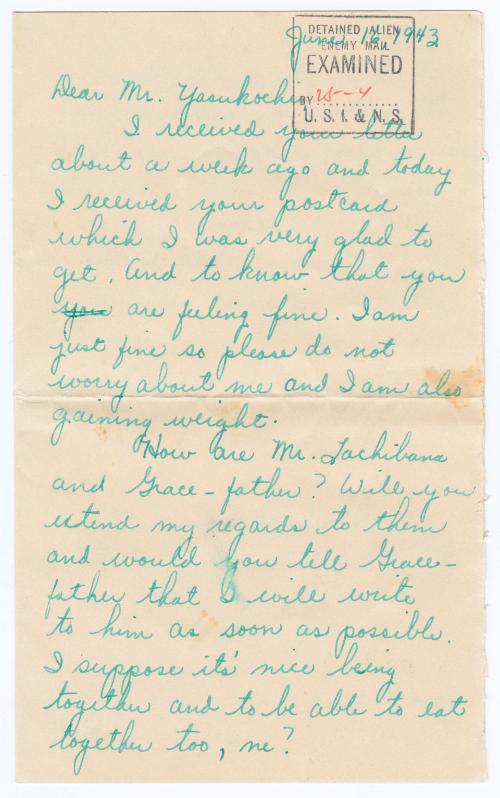 June 16, 1943
DETAINED ALIEN
ENEMY MAIL
EXAMINED
BY 25-4
U. S. I. & N. S.
Dear Mr. Yasukochi,
I received your letter
about a week ago and today
I received your postcard
which I was very glad to
get. And to know that you
you are feeling fine. I am
just fine so please do not
worry about me and I am also
gaining weight.
How are Mr. Tachibana
and Grace-father? Will you
extend my regards to them
and would you tell Grace-
father that I will write
to him as soon as possible.
I suppose its' nice being
together and to be able to eat
together too, ne?